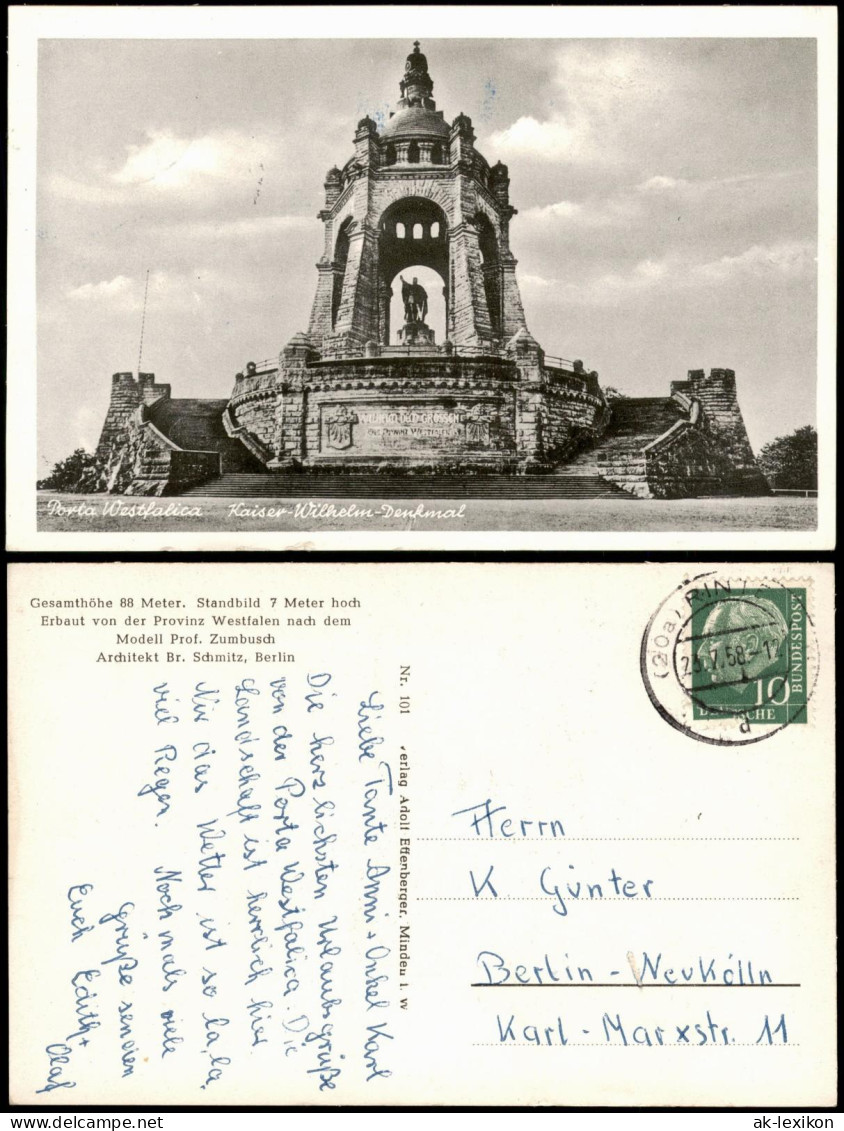 WILHELM DEM GROSSEN
DIE PROVINZ WESTFALEN
Porta Westfalica Kaiser-Wilhelm-Denkmal
Gesamthöhe 88 Meter. Standbild 7 Meter hoch
Erbaut von der Provinz Westfalen nach dem
Modell Prof. Zumbusch
Architekt Br. Schmitz, Berlin
Liebe Tante Anni + Onkel Karl
Die herzlichsten Urlaubsgrüße
von der Porta Westfalica. Die
Landschaft ist herrlich hier
Nur das Wetter ist so la, la,
viel Regen. Noch mals viele
Grüße senden
Euch Edith +
Olaf
Nr. 101 Verlag Adolf Effenberger, Minden i. W
(20a) RIN
23.7.58.-12
d
10
DEUTSCHE
BUNDESPOST
Herrn
K Günter
Berlin-Neukölln
Karl-Marxstr. 11
ak-lexikon